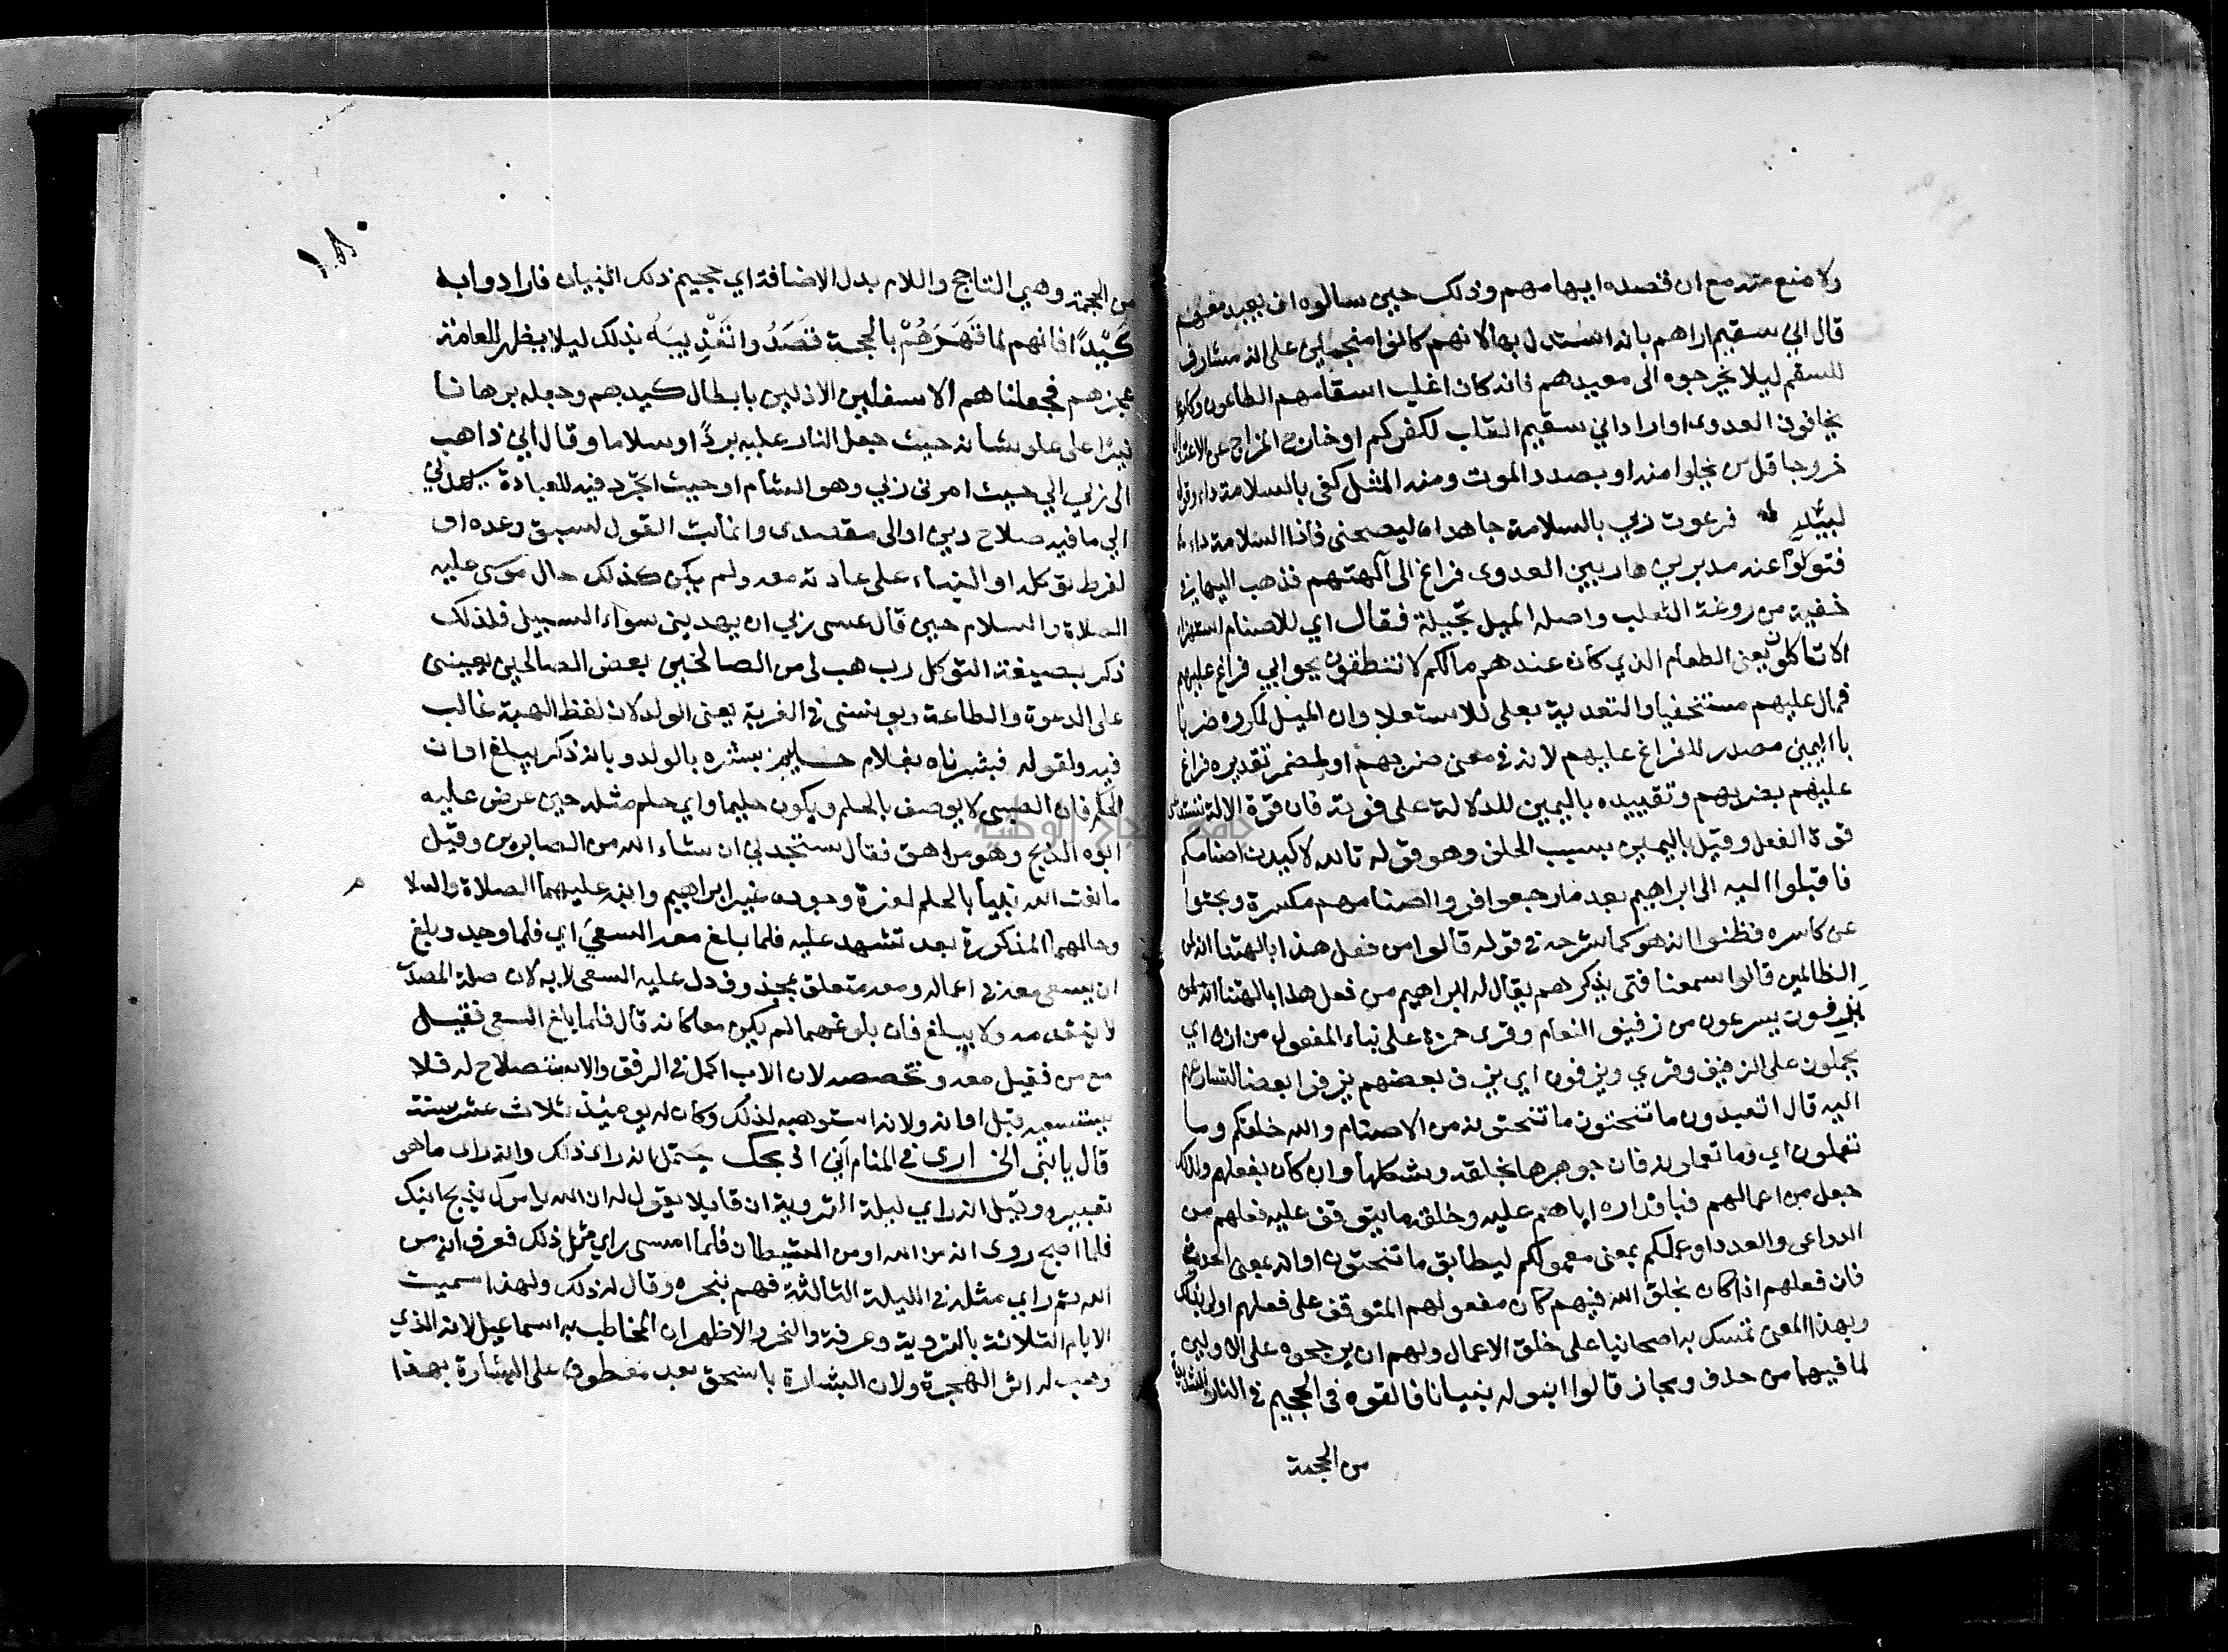 ولا منع منه مع ان قصده ايهامهم وذلك حين سالوه ان يعيد معهم
قال اني سقيم اراهم بانه استدل بها لانهم كانوا منجمين على انه مشارف
للسقم ليلا يخرجوه الى معيدهم فانه كان اغلب اسقامهم الطاعون وكانوا
يخافون العدوى او اراد اني سقيم القلب لكفركم او خارج المزاج عن الاعتدال
خروجا قل من يخلوا منه او بصدد الموت ومنه المثل كفى بالسلامة داء وقول
لبيد فدعوت ربي بالسلامة جاهدا ليصحني فاذا السلامة داء
فتولوا عنه مدبرين هاربين العدوى فراغ الى آلهتهم فذهب اليها في
خفية من روغة الثعلب واصله الميل بحيلة فقال اي للاصنام استهزاء
الا تاكلون يعني الطعام الذي كان عندهم مالكم لا تنطقون بجوابي فراغ عليهم
فمال عليهم مستخفيا والتعدية بعلى للاستعلا وان الميل لمكروه ضربا
باليمين مصدر لفراغ عليهم لانه في معنى ضربهم او لمضمر تقديره فراغ
عليهم يضربهم وتقييده باليمين للدلالة على قوته فان قوة الالة تستدعي
قوة الفعل وقيل باليمين بسبب الحلف وهو قوله تالله لاكيدن اصنامكم
فاقبلوا اليه الى ابراهيم بعد ما رجعوا فراوا اصنامهم مكسرة وبحثوا
عن كاسره فظنوا انه هو كما شرحه في قوله قالوا من فعل هذا بالهتنا انه لمن
الظالمين قالوا سمعنا فتى يذكرهم يقال له ابراهيم من فعل هذا بالهتنا انه لمن
يزفون يسرعون من زفيف النعام وقرى حمزة على بناء المفعول من ازفه اي
يحملون على الزفيف وقري ويزفون اي يزف بعضهم يزفوا بعضا لتسارعهم
اليه قال اتعبدون ما تنحتون ما تنحتونه من الاصنام والله خلقكم وما
تعملون اي وما تعملونه فان جوهرها بخلقه وشكلها وان كان بفعلهم ولذلك
جعل من اعمالهم فباقداره اياهم عليه وخلقه ما يتوقف عليه فعلهم من
الدواعي والعدد او عملكم بمعنى معمولكم ليطابق ما تنحتون او انه بمعنى الحدث
فان فعلهم اذا كان بخلق الله فيهم كان مفعولهم المتوقف على فعلهم اولى بذلك
وبهذا المعنى تمسك به اصحابنا على خلق الاعمال ولهم ان يرجحوه على الاولين
لما فيهما من حذف ومجاز قالوا ابنوا له بنيانا فالقوه في الجحيم في النار الشديدة
من الجحمة
١٨٠
من الجحمة وهي التاجج واللام بدل الاضافة اي جحيم ذلك البنيان فارادوا به
كيدا فانهم لما قهرهم بالحجة قصدوا تعذيبه بذلك ليلا يظهر للعامة
عجزهم فجعلناهم الاسفلين الاذلين بابطال كيدهم وجعله برهانا
نيرا على علو شانه حيث جعل النار عليه بردا وسلاما وقال اني ذاهب
الى ربي الي حيث امرني ربي وهو الشام او حيث اتجرد فيه للعبادة سيهديني
الي ما فيه صلاح ديني او الى مقصدي وانما بت القول لسبق وعده او
لفرط توكله او البناء على عادته معه ولم يكن كذلك حال موسى عليه
الصلاة والسلام حين قال عسى ربي ان يهديني سواء السبيل فلذلك
ذكر بصيغة التوكل رب هب لي من الصالحين بعض الصالحين يعينني
على الدعوة والطاعة ويونسني في الغربة يعني الولد لان لفظ الهبة غالب
فيه ولقوله فبشرناه بغلام حليم بشره بالولد وبانه ذكر يبلغ اوان
الحلم فان الصبي لا يوصف بالحلم ويكون حليما واي حلم مثله حين عرض عليه
ابوه الذبح وهو مراهق فقال ستجدني ان شاء الله من الصابرين وقيل
ما نعت الله نبيا بالحلم لعزة وجوده غير ابراهيم وابنه عليهما الصلاة والسلا
م
وحالهما المذكورة بعد تشهد عليه فلما بلغ معه السعي اي فلما وجد وبلغ
ان يسعى معه في اعماله ومعه متعلق بمحذوف دل عليه السعي لا به لان صلة المصدر
لا يتقدمه ولا ببلغ فان بلوغهما لم يكن معا كانه قال فلما بلغ السعي فقيل
مع من فقيل معه وتخصصه لان الاب اكمل في الرفق والاستصلاح له فلا
يستسعيه قبل اوانه ولانه استوهبه لذلك وكان له يومئذ ثلاث عشر سنة
قال يا بني اني ارى في المنام اني اذبحك يحتمل انه راى ذلك وانه راى ما هو
تعبيره وقيل انه راي ليلة التروية ان قايلا يقول له ان الله يامرك بذبح ابنك
فلما اصبح روى انه من الله او من الشيطان فلما امسى راي مثل ذلك فعرف انه من
الله ثم راي مثله في الليلة الثالثة فهم بنحره وقال له ذلك ولهذا سميت
الايام الثلاثة بالتروية وعرفة والنحر والاظهر ان المخاطب به اسماعيل لانه الذي
وهب له اثر الهجرة ولان البشارة باسحق بعد معطوف على البشارة بهذا